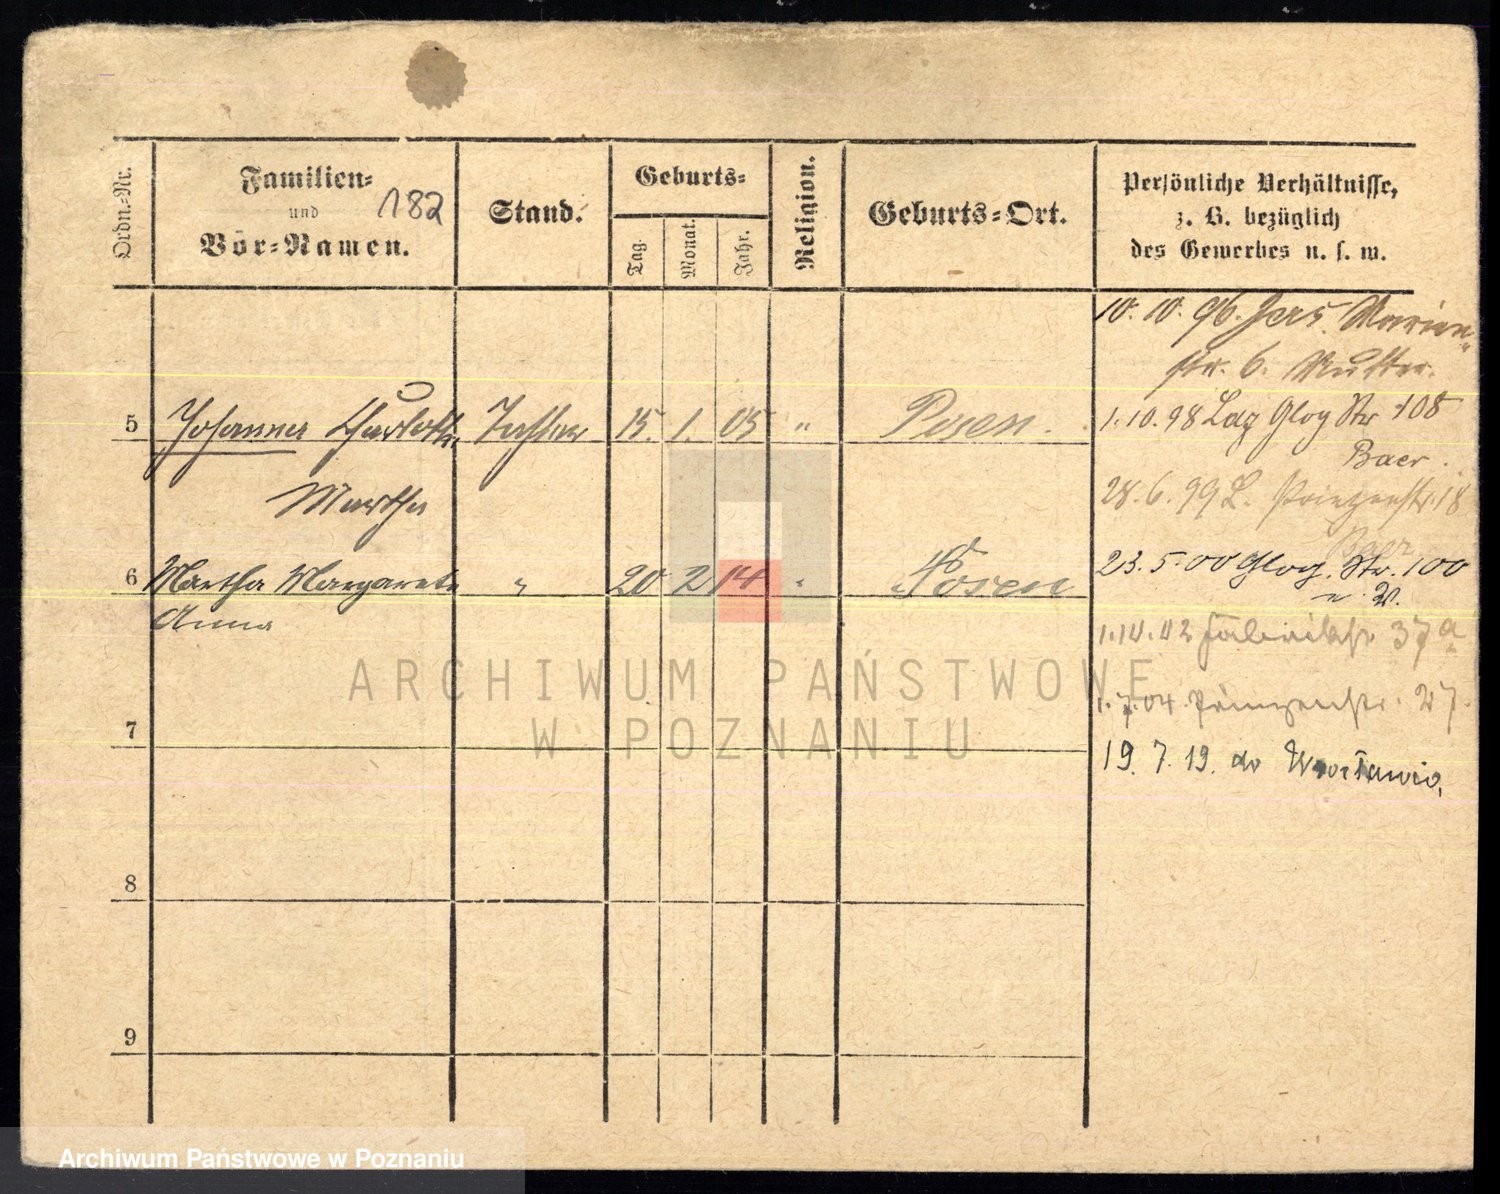 Ordn.-Nr.
Familien-
und 182
Vor-Namen.
Stand.
Geburts-
Tag.
Monat.
Jahr.
Religion.
Geburts-Ort.
Persönliche Verhältnisse,
z. B. bezüglich
des Gewerbes u. s. w.
10. 10. 96. Jers. Marien-
str. 6. Mutter.
5 Johanna Charlotte Tochter 15. 1. 05 " Posen.
Martha
1.10.98 Laz Glog Str 108
Baer.
28.6.99 L. Prinzenstr. 18
Baer
6 Martha Margarete " 20 2 14 " Posen
Anna
23.5.00 Glog. Str. 100
1.10.02 Fabrikstr 37a
1.7.04. Prinzenstr. 27.
7
19. 7. 19. do Wrocławia,
8
9
ARCHIWUM PAŃSTWOWE
W POZNANIU
Archiwum Państwowe w Poznaniu